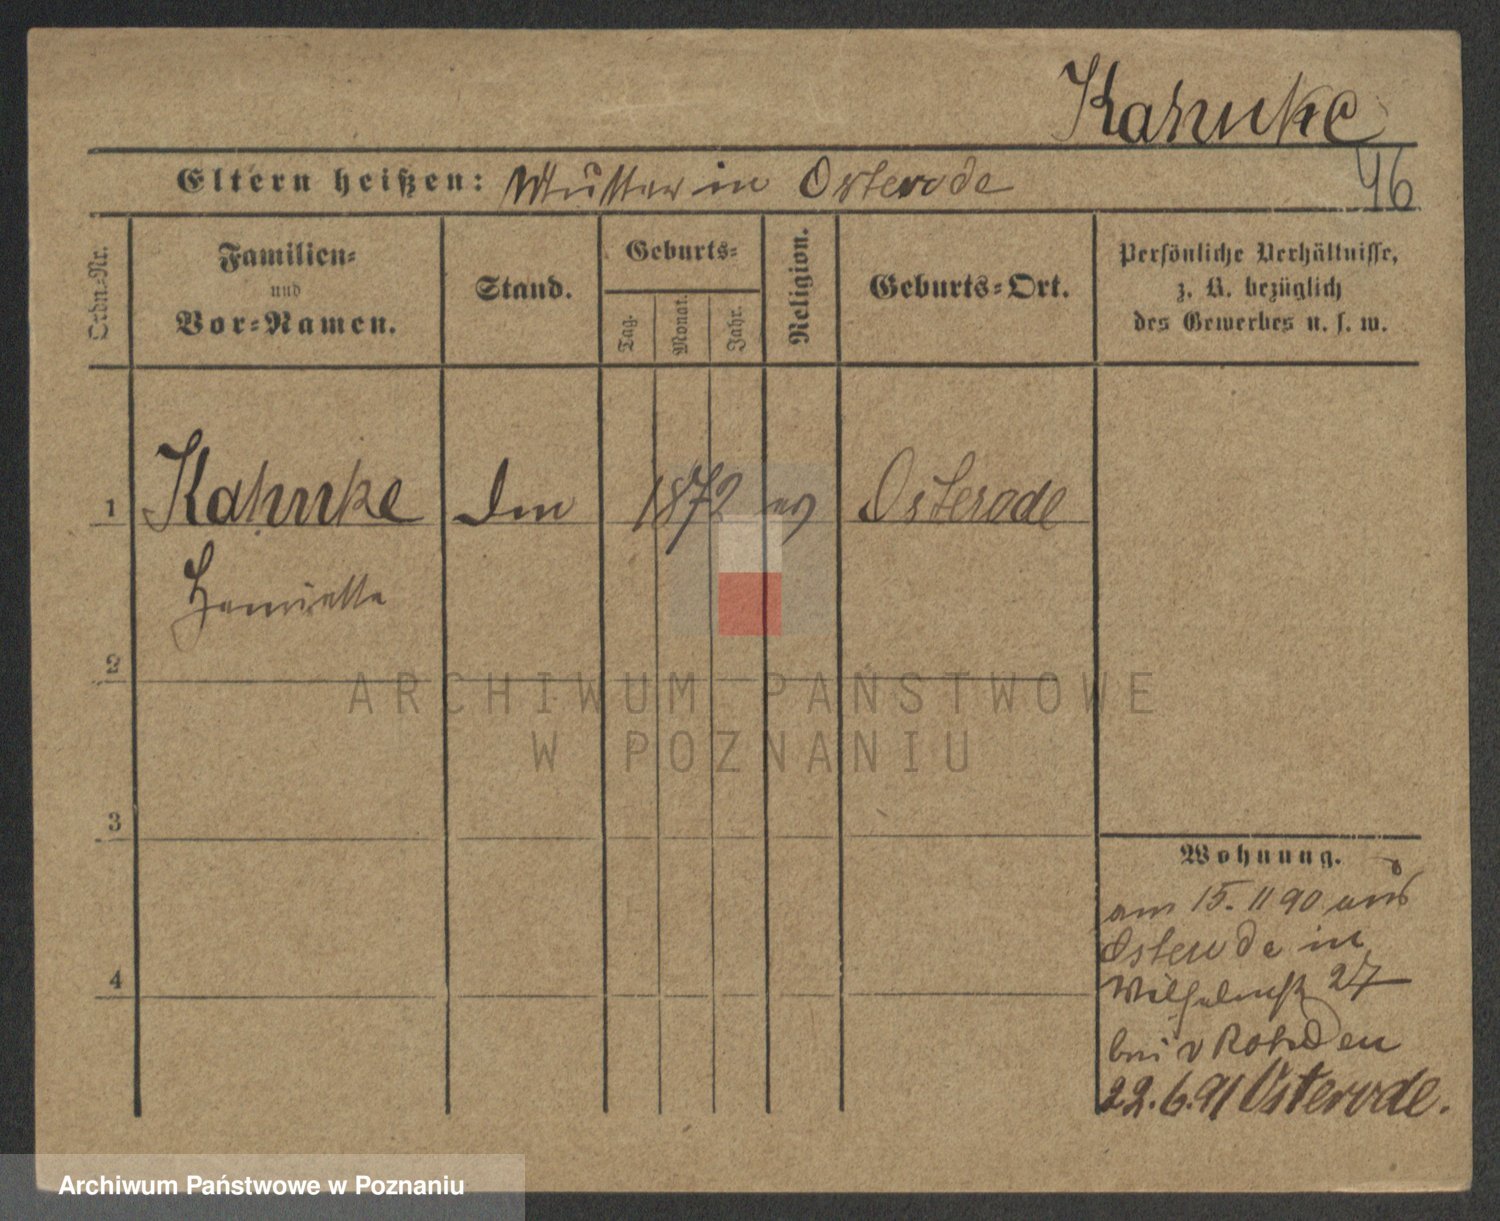 Kahnke
Eltern heißen: Mutter in Osterode
46
Ordn.-Nr.
Familien-
und
Vor-Namen.
Stand.
Geburts-
Tag.
Monat.
Jahr.
Religion.
Geburts-Ort.
Persönliche Verhältnisse,
z. B. bezüglich
des Gewerbes u. s. w.
1 Kahnke 1872 ev Osterode
Henriette
2
ARCHIWUM PAŃSTWOWE
W POZNANIU
3
Wohnung.
am 15. 11 90 aus
Osterode in
4
Wilhelmstr 27
bei v Rohden
22.6.91 Osterode.
Archiwum Państwowe w Poznaniu